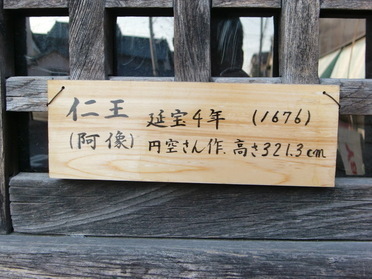 仁王 延宝4年 (1676)
(阿像) 円空さん作.高さ321.3cm